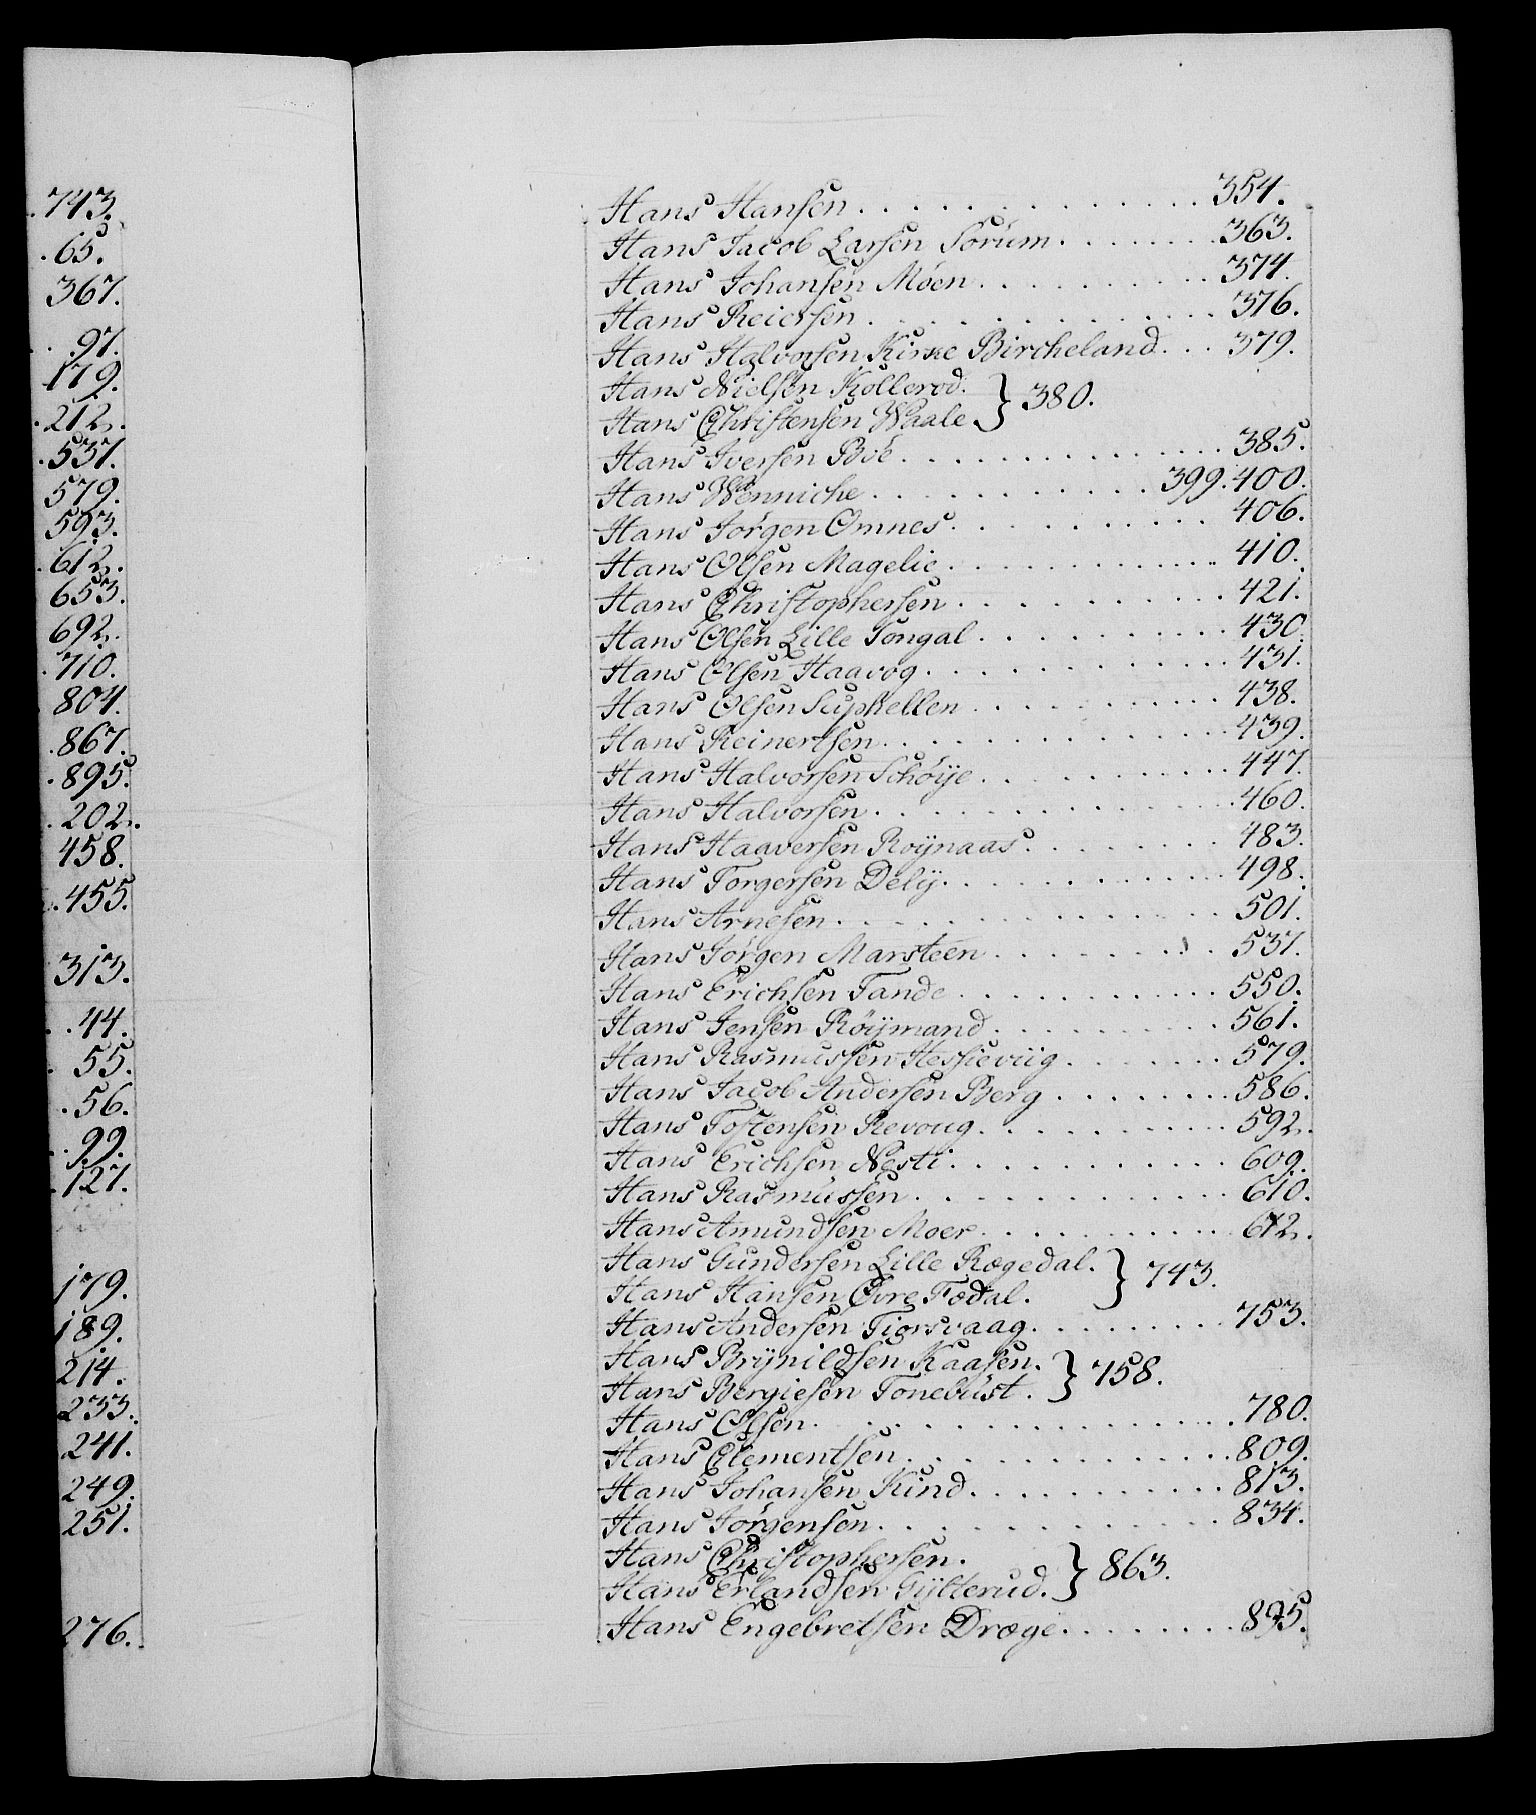 743.
65.
367.
97.
179.
212.
537.
579.
593.
612.
653.
692.
710.
804.
867.
895.
202.
458.
455.
313.
44.
55.
56.
99.
127.
179.
189.
214.
233.
241.
249.
251.
276.
Hans Hansen . . . . . . . . . . . . . 354.
Hans Jacob Larsen Sørum . . . . . . . 363.
Hans Johansen Möen . . . . . . . . . 374.
Hans Reiersen . . . . . . . . . . . . . 376.
Hans Halvorsen Kirke Bircheland . . . 379.
Hans Nielsen Kollerød.
Hans Christensen Waale } 380.
Hans Iversen Böe . . . . . . . . . . . . 385.
Hans Wenniche . . . . . . . . . . . 399. 400.
Hans Jörgen Omnes . . . . . . . . . . 406.
Hans Olsen Magelie . . . . . . . . . . . 410.
Hans Christophersen . . . . . . . . . . 421.
Hans Olsen Lille Tongal . . . . . . . . . 430.
Hans Olsen Haavog . . . . . . . . . . . 431.
Hans Olsen Suphellen . . . . . . . . . . 438.
Hans Reinertsen . . . . . . . . . . . . . 439.
Hans Halvorsen Schöye . . . . . . . . . 447.
Hans Halvorsen . . . . . . . . . . . . . 460.
Hans Haaversen Roÿnaas . . . . . . . . 483.
Hans Torgersen Delÿ . . . . . . . . . . 498.
Hans Arnesen . . . . . . . . . . . . . . 501.
Hans Jörgen Marsteen . . . . . . . . . 537.
Hans Erichsen Tande . . . . . . . . . . 550.
Hans Jensen Röÿmand . . . . . . . . . 561.
Hans Rasmussen Hessieviig . . . . . . . 579.
Hans Jacob Andersen Berg . . . . . . . 586.
Hans Tostensen Revoug . . . . . . . . . 592.
Hans Erichsen Nesti . . . . . . . . . . . 609.
Hans Rasmussen . . . . . . . . . . . . 610.
Hans Amundsen Moer . . . . . . . . . . 612.
Hans Gundersen Lille Rægedal.
Hans Hansen Övre Fødal. } 743.
Hans Andersen Tiorsvaag . . . . . . . . 753.
Hans Brÿnildsen Kaasen.
Hans Bergiesen Tonebust. } 758.
Hans Olsen . . . . . . . . . . . . . . . 780.
Hans Clementsen . . . . . . . . . . . . 809.
Hans Johansen Kind . . . . . . . . . . . 813.
Hans Jörgensen . . . . . . . . . . . . . 834.
Hans Christophersen.
Hans Erlandsen Gÿlterud. } 863.
Hans Engebretsen Dræge . . . . . . . . 895.